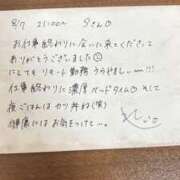 8/7 21:00〜 Sさん♡
お仕事終わりに会いに来てくださって
ありがとうございました☺
にしても リモート勤務 うらやましぃーー!!!
仕事終わりに濃厚ハードタイム♡ そして
夜ごはんはカツ丼ね(笑)
体調にはお気をつけて〜。